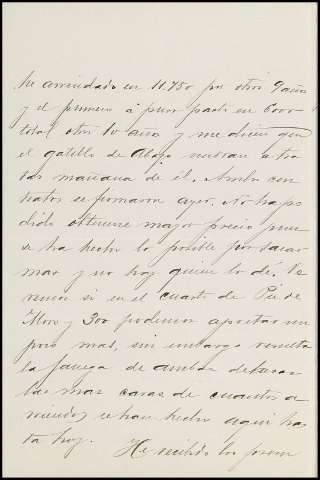 he arrendado en 11.750 por otros 9 años
y el primero á puro pasto en 6000
total otros 10 años y me dicen que
el gatillo de Abajo vendran a tra
tar mañana de él. Ambos con
tratos se firmaron ayer. No ha po
dido obtenerse mayor precio pues
se ha hecho lo posible por sacar
mas y no hay quien lo dé. Ve
remos si en el cuarto de Pie de
Moro y 300 podemos apretar un
poco mas, sin embargo resulta
la fanega de ambas dehesas
las mas caras de cuantos a
rriendos se han hecho aqui has
ta hoy. He recibido los prem